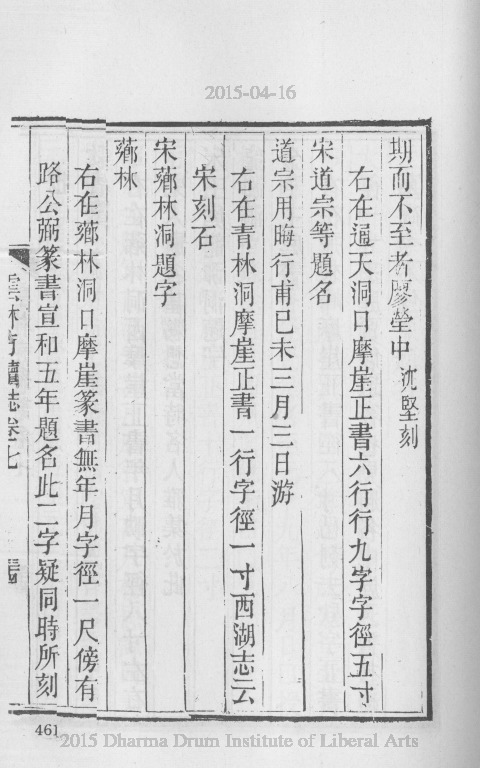 2015-04-16
期而不至者廖瑩中 沈堅刻
右在通天洞口摩崖正書六行行九字字徑五寸
宋道宗等題名
道宗用晦行甫己未三月三日游
右在青林洞摩崖正書一行字徑一寸西湖志云
宋刻石
宋薌林洞題字
薌林
右在薌林洞口摩崖篆書無年月字徑一尺傍有
路公弼篆書宣和五年題名此二字疑同時所刻
雲林寺續誌卷七
461
2015 Dharma Drum Institute of Liberal Arts